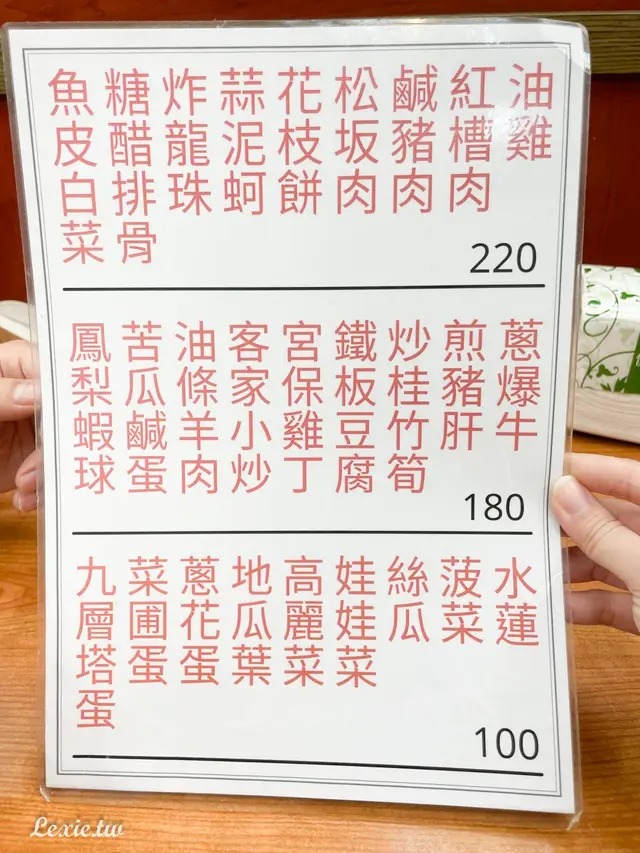 油雞
紅槽肉
鹹豬肉
松坂肉
花枝餅
蒜泥蚵
炸龍珠
糖醋排骨
魚皮白菜
220
蔥爆牛
煎豬肝
炒桂竹筍
鐵板豆腐
宮保雞丁
客家小炒
油條羊肉
苦瓜鹹蛋
鳳梨蝦球
180
水蓮
菠菜
絲瓜
娃娃菜
高麗菜
地瓜葉
蔥花蛋
菜圃蛋
九層塔蛋
100
Lexie.tw